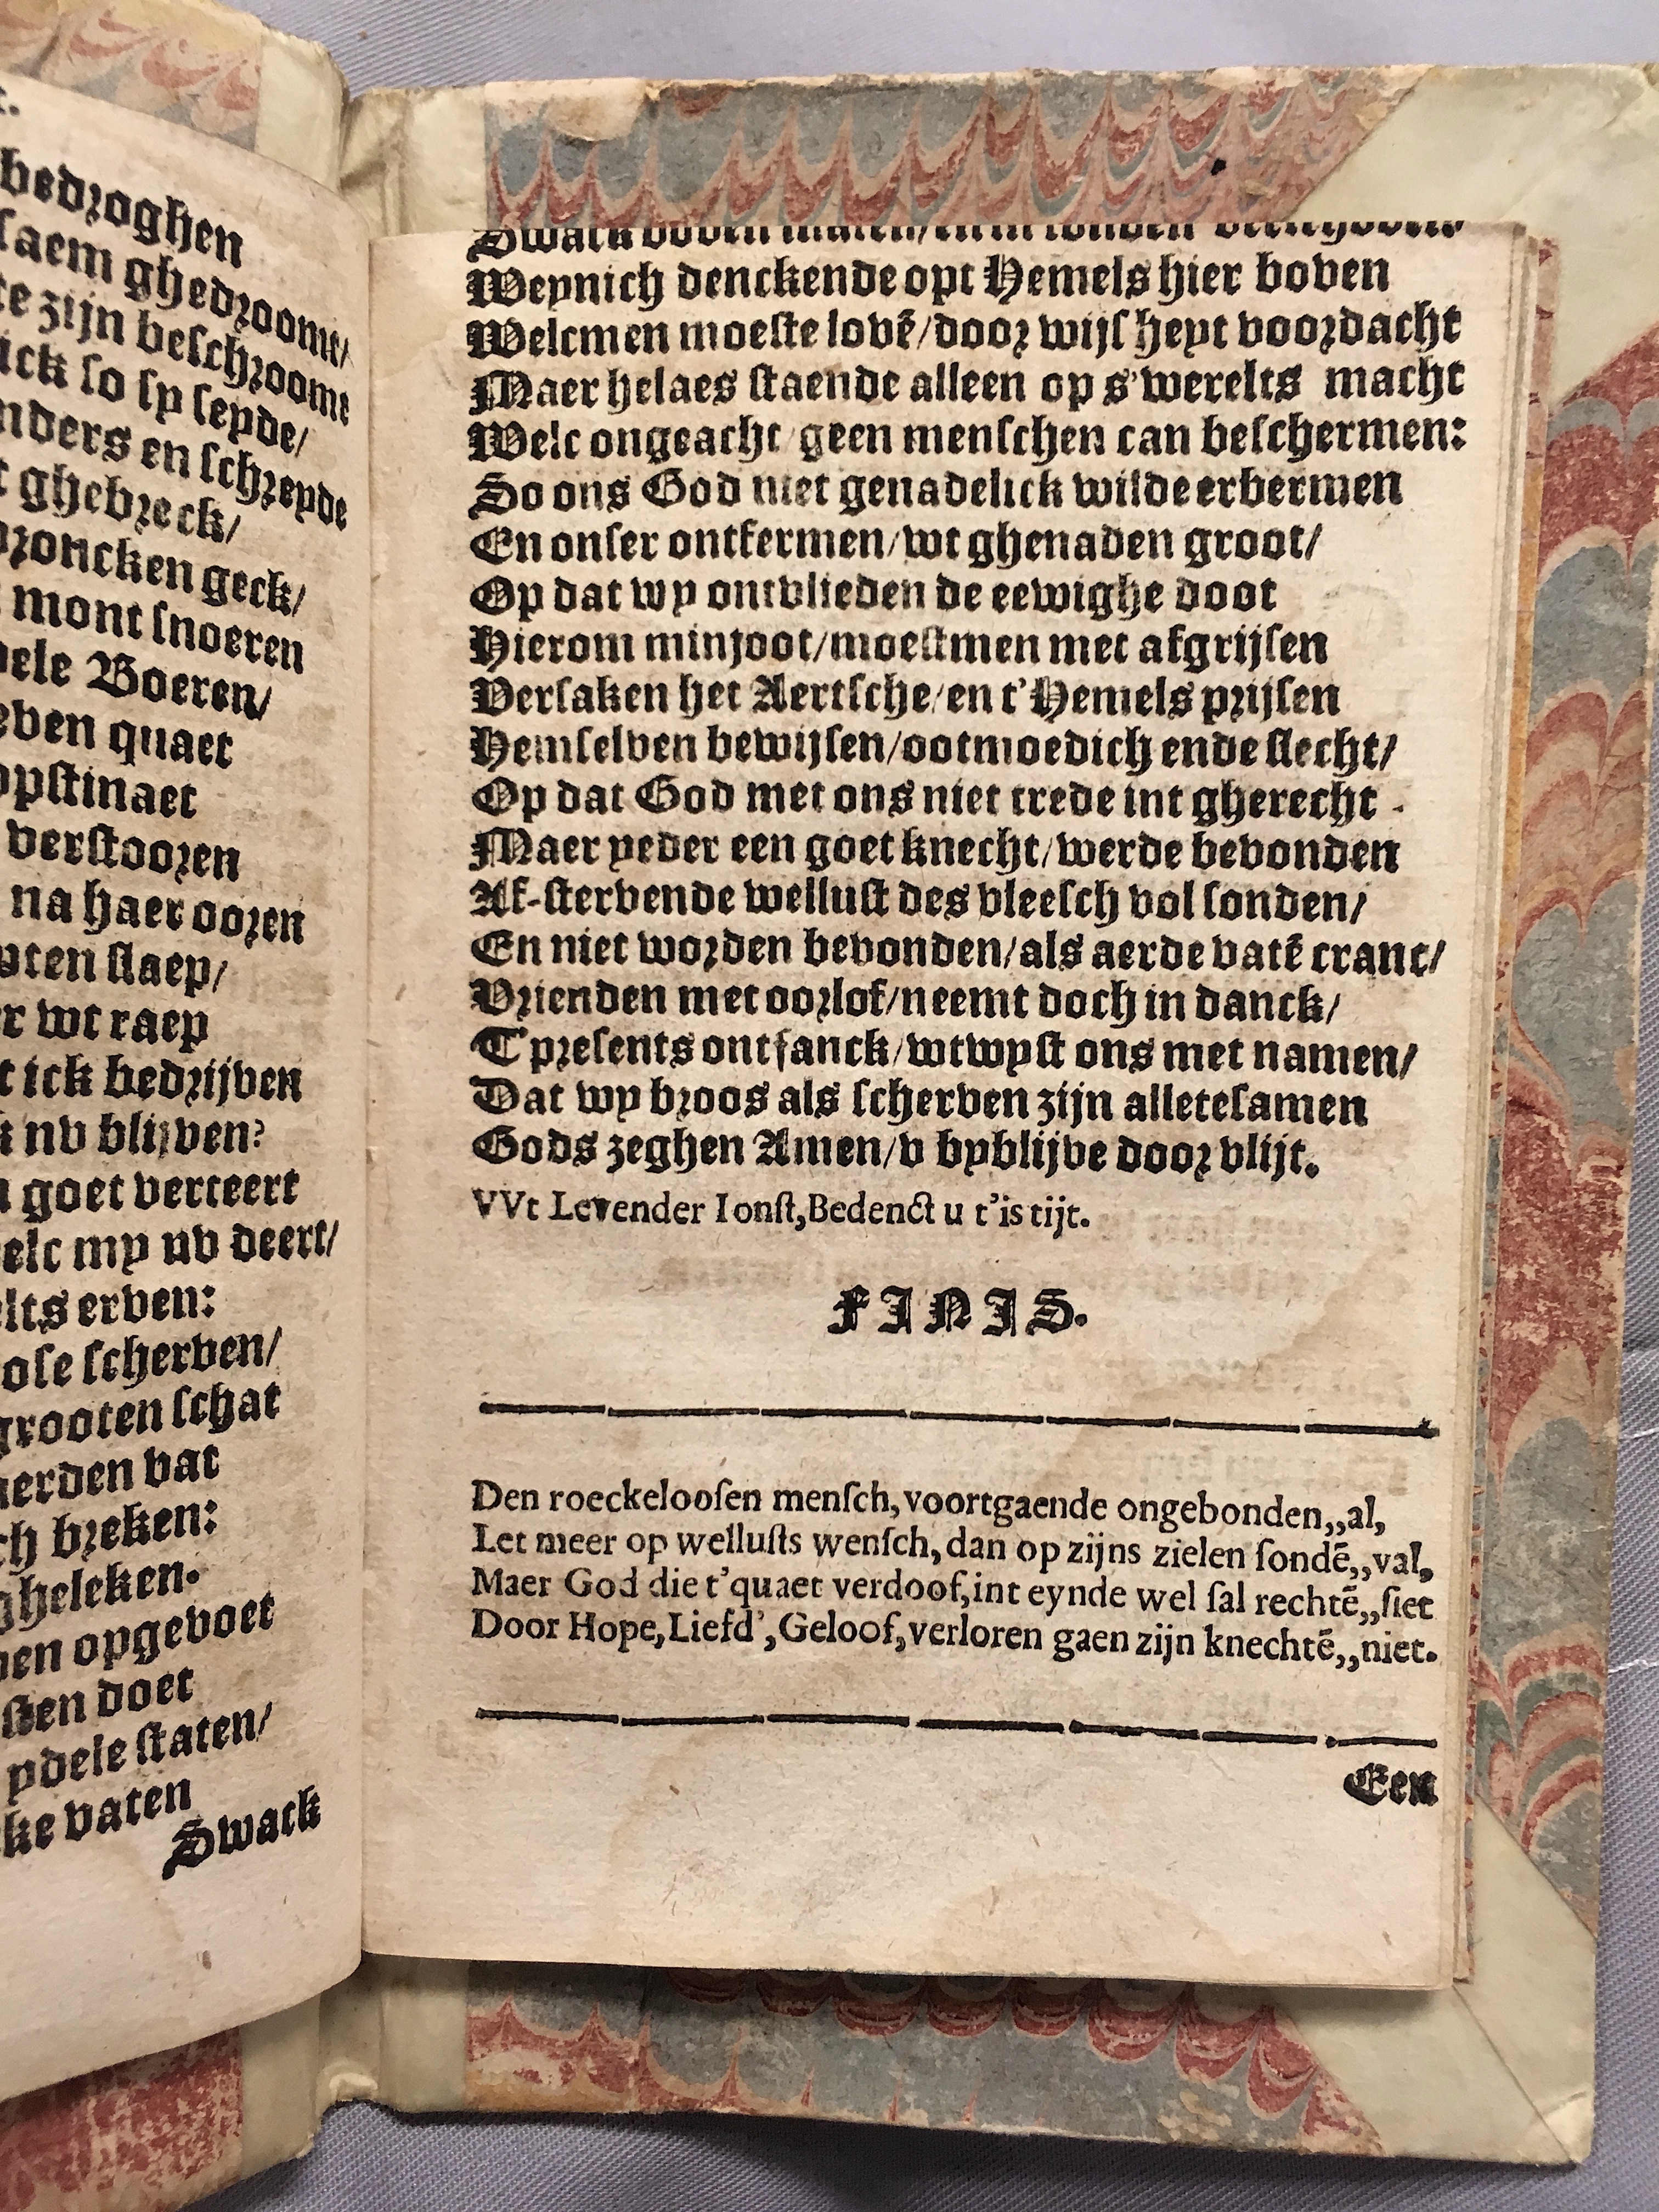 bedroghen
saem ghedroomt/
te zijn beschroomt
ick so sy seyde/
nders en schreyde
t ghebreck/
droncken geck/
mont snoeren
dele Boeren/
even quaet
opstinaet
verstooren
na haer ooren
yten slaep/
er wt raep
t ick bedrijven
k nv blijven?
goet verteert
elc my nv deert/
elts erven:
ose scherven/
grooten schat
aerden vat
ch breken:
gheleken.
en opgevoet
sten doet
ydele staten/
ke vaten
Swack
Swack boven maten/
Weynich denckende opt Hemels hier boven
Welcmen moeste lovē/door wijsheyt voordacht
Maer helaes staende alleen op s'werelts macht
Welc ongeacht/geen menschen can beschermen:
So ons God niet genadelick wilde erbermen
En onser ontfermen/wt ghenaden groot/
Op dat wy ontvlieden de eewighe doot
Hierom minjoot/moestmen met afgrijsen
Versaken het Aertsche/en t'Hemels prijsen
Hemselven bewijsen/ootmoedich ende slecht/
Op dat God met ons niet trede int gherecht
Maer yeder een goet knecht/werde bevonden
Af-stervende wellust des vleesch vol sonden/
En niet worden bevonden/als aerde vatē cranc/
Vrienden met oorlof/neemt doch in danck/
T presents ontfanck/wtwyst ons met namen/
Dat wy broos als scherven zijn alletesamen
Gods zeghen Amen/v byblijve door vlijt.
VVt Levender Ionst, Bedenct u t'is tijt.
FINIS.
Den roeckeloosen mensch, voortgaende ongebonden,,al,
Let meer op wellusts wensch, dan op zijns zielen sondē,,val,
Maer God die t'quaet verdoof, int eynde wel sal rechtē,,siet
Door Hope, Liefd', Geloof, verloren gaen zijn knechtē,,niet.
Een